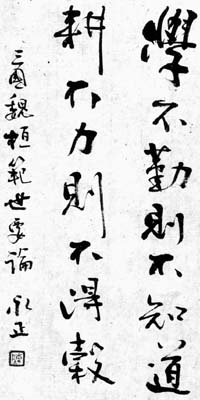 學不勤則不知道
耕不力則不得穀
三國魏桓範世要論 永正